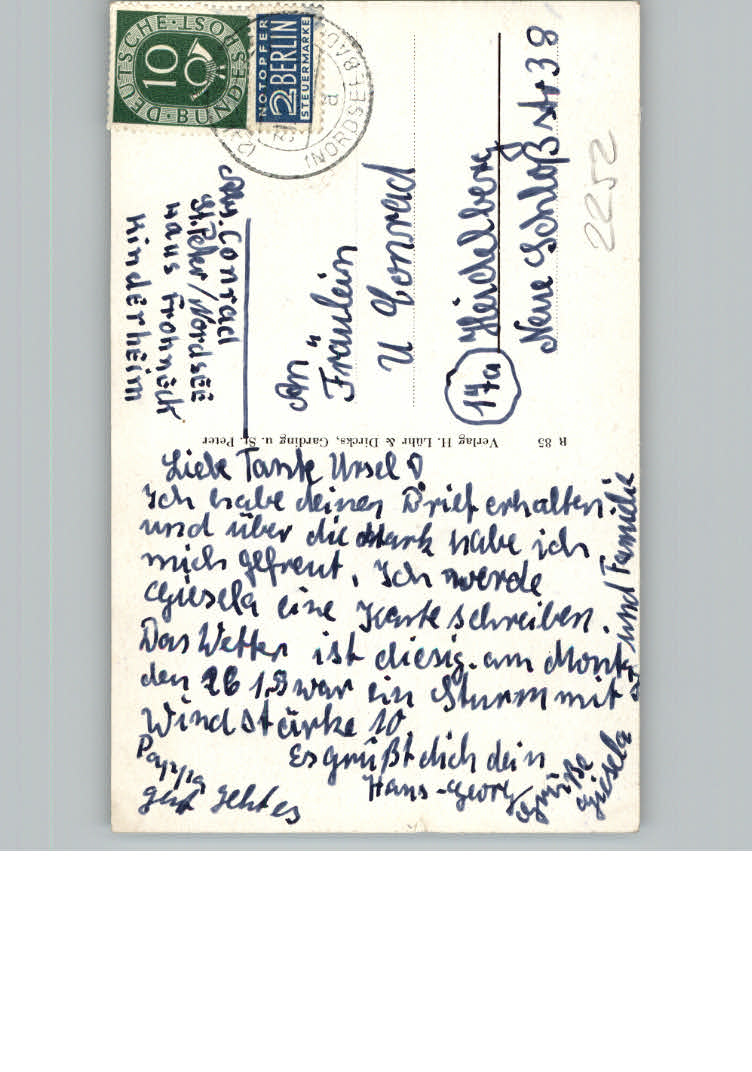 DEUTSCHE·BUNDESPOST
10
NOTOPFER
2 BERLIN
STEUERMARKE
(NORDSEEBAD)
a
Abs. Conrad
St. Peter/Nordsee
Haus Frohneck
Kinderheim
An
Fräulein
U Conrad
17a Heidelberg
Neue Schloßstr 38
2252
R 85
Verlag H. Lühr & Dircks, Garding u. St. Peter
Liebe Tante Ursel!
Ich habe deinen Brief erhalten.
und über die Mark habe ich
mich gefreut. Ich werde
Giesela eine Karte schreiben.
Das Wetter ist diesig. am Montag
den 26 1. war ein Sturm mit
Windstärke 10.
Es grüßt dich dein
Hans-Georg
Grüße
Giesela
und Familie
Pappa
gut geht es